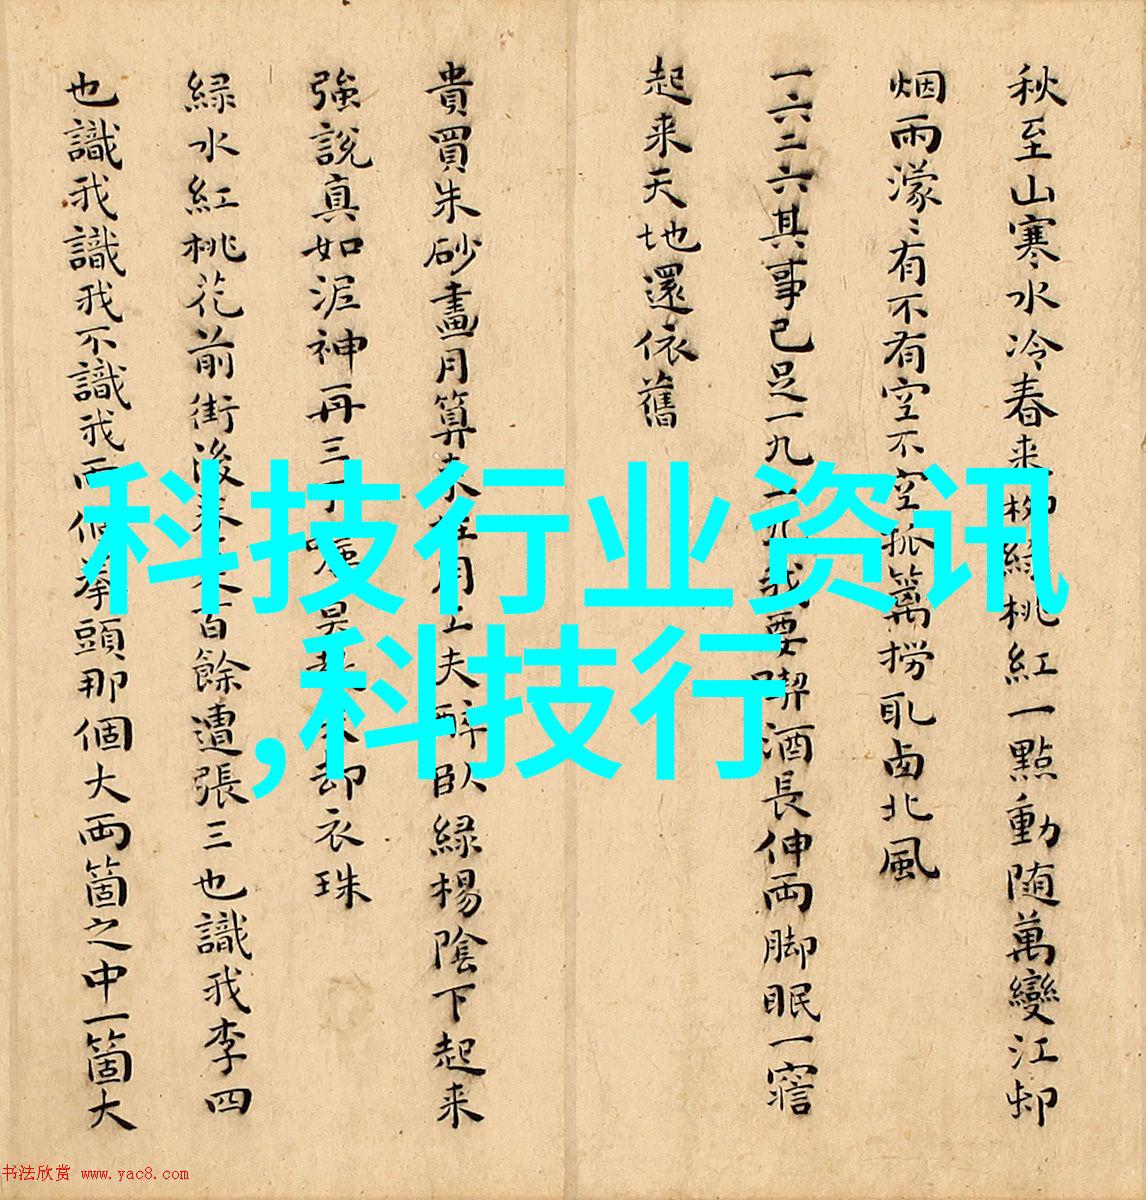 秋至山寒水冷春来柳綠桃紅一點動随萬變江邨
烟雨濛〻有不有空不空笊籬撈取西北風
一六二六其事已足一九二九我要喫酒長伸両脚眠一寤
起来天地還依舊
貴買朱砂畫月算来工夫醉臥綠楊陰下起来
強說真如泥神再三却衣珠
緑水紅桃花前街後百餘遭張三也識我李四
也識我識我不識我両拳頭那個大両箇之中一箇大
科技行业资讯
,科技行
书法欣赏 www.yac8.com